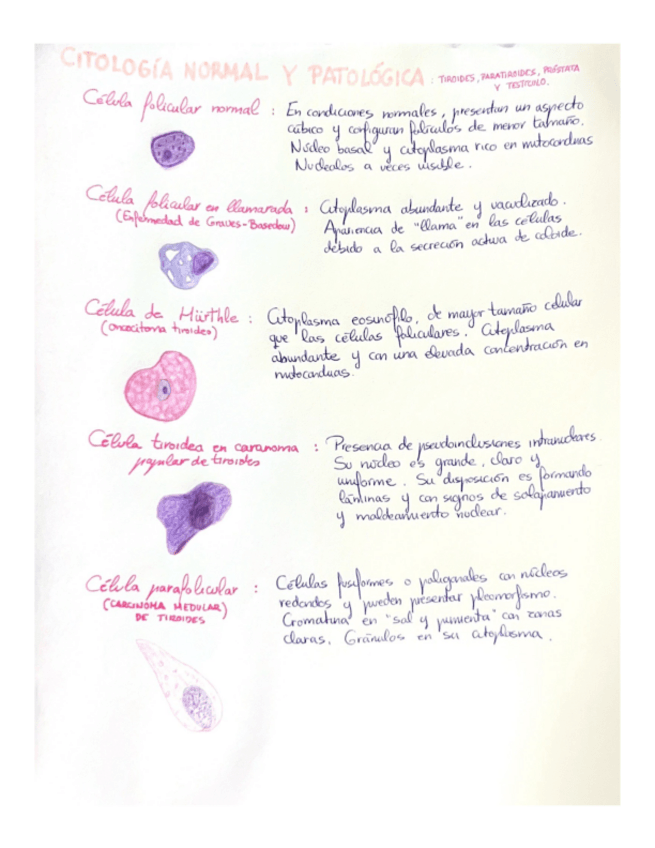 CITOLOGÍA NORMAL Y PATOLÓGICA : TIROIDES, PARATIROIDES, PRÓSTATA
Y TESTÍCULO.
Célula folicular normal : En condiciones normales, presentan un aspecto
cúbico y configuran folículos de menor tamaño.
Núcleo basal y citoplasma rico en mitocondrias
Nucleolos a veces visible.
Célula folicular en llamarada : Citoplasma abundante y vacuolizado.
(Enfermedad de Graves-Basedow) Apariencia de "llama" en las células
debido a la secreción activa de coloide.
Célula de Hürthle : Citoplasma eosinófilo, de mayor tamaño celular
(oncocitoma tiroideo) que las células foliculares. Citoplasma
abundante y con una elevada concentración en
mitocondrias.
Célula tiroidea en carcinoma : Presencia de pseudoinclusiones intranucleares.
papilar de tiroides Su núcleo es grande, claro y
uniforme. Su disposición es formando
láminas y con signos de solapamiento
y moldeamiento nuclear.
Célula parafolicular : Células fusiformes o poligonales con núcleos
(CARCINOMA MEDULAR) redondos y pueden presentar pleomorfismo.
DE TIROIDES Cromatina en "sal y pimienta" con zonas
claras. Gránulos en su citoplasma.